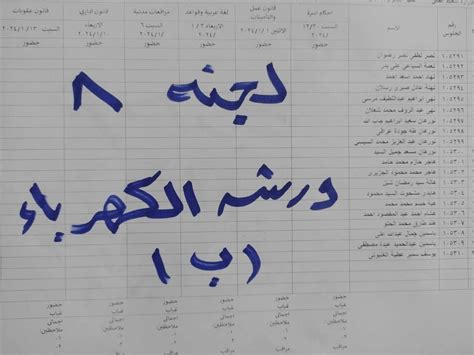 رقم الجلوس الاسم أحكام أسرة السبت ١٢/٣٠ /٢٠٢٤ حضور قانون عمل والتأمينات الاثنين ٢٠٢٤/١/١ حضور لغة عربية وقواعد الاربعاء ١/٣ /٢٠٢٤ حضور مرافعات مدنية السبت ١/٦ /٢٠٢٤ حضور قانون اداري الاربعاء ٢٠٢٤/١/١٠ حضور قانون عقوبات السبت ٢٠٢٤/١/١٣ حضور
١٠٥٢٩١ نصر لطفي نصر رضوان
١٠٥٢٩٢ نعمة السباعي علي بدر
١٠٥٢٩٣ نهاد احمد اسعد احمد
١٠٥٢٩٤ نهلة عادل صبري رسلان
١٠٥٢٩٥ نهى ابراهيم عبداللطيف مرسى
١٠٥٢٩٦ نهى عبد الرؤف محمد شعلان
١٠٥٢٩٧ نورهان سعيد ابراهيم جاب الله
١٠٥٢٩٨ نورهان طه جودة عراقي
١٠٥٢٩٩ نورهان عبد العزيز محمد السيسى
١٠٥٣٠٠ نورهان مسعد جميل السيد
١٠٥٣٠١ هاجر حازم محمد حامد
١٠٥٣٠٢ هاجر محمد محمود الجزيرى
١٠٥٣٠٣ هالة سيد رمضان
١٠٥٣٠٤ هايدى ممدوح السيد محمود
١٠٥٣٠٥ هبه محمد محمد محمد
١٠٥٣٠٦ هشام احمد عبد المقصود احمد
١٠٥٣٠٧ هند طارق محمد
١٠٥٣٠٨ ياسمين جمال عبدالله علي
١٠٥٣٠٩ ياسمين عبدالحميد عبدة مصطفى
١٠٥٣١٠ يوسف سمير عطية
لجنه ٨
ورشه الكهرباء
(ب)
حضور حضور حضور حضور حضور حضور
غياب غياب غياب غياب غياب غياب
اجمالي اجمالي اجمالي اجمالي اجمالي اجمالي
ملاحظين: ملاحظين: ملاحظين: ملاحظين: ملاحظين: ملاحظين: